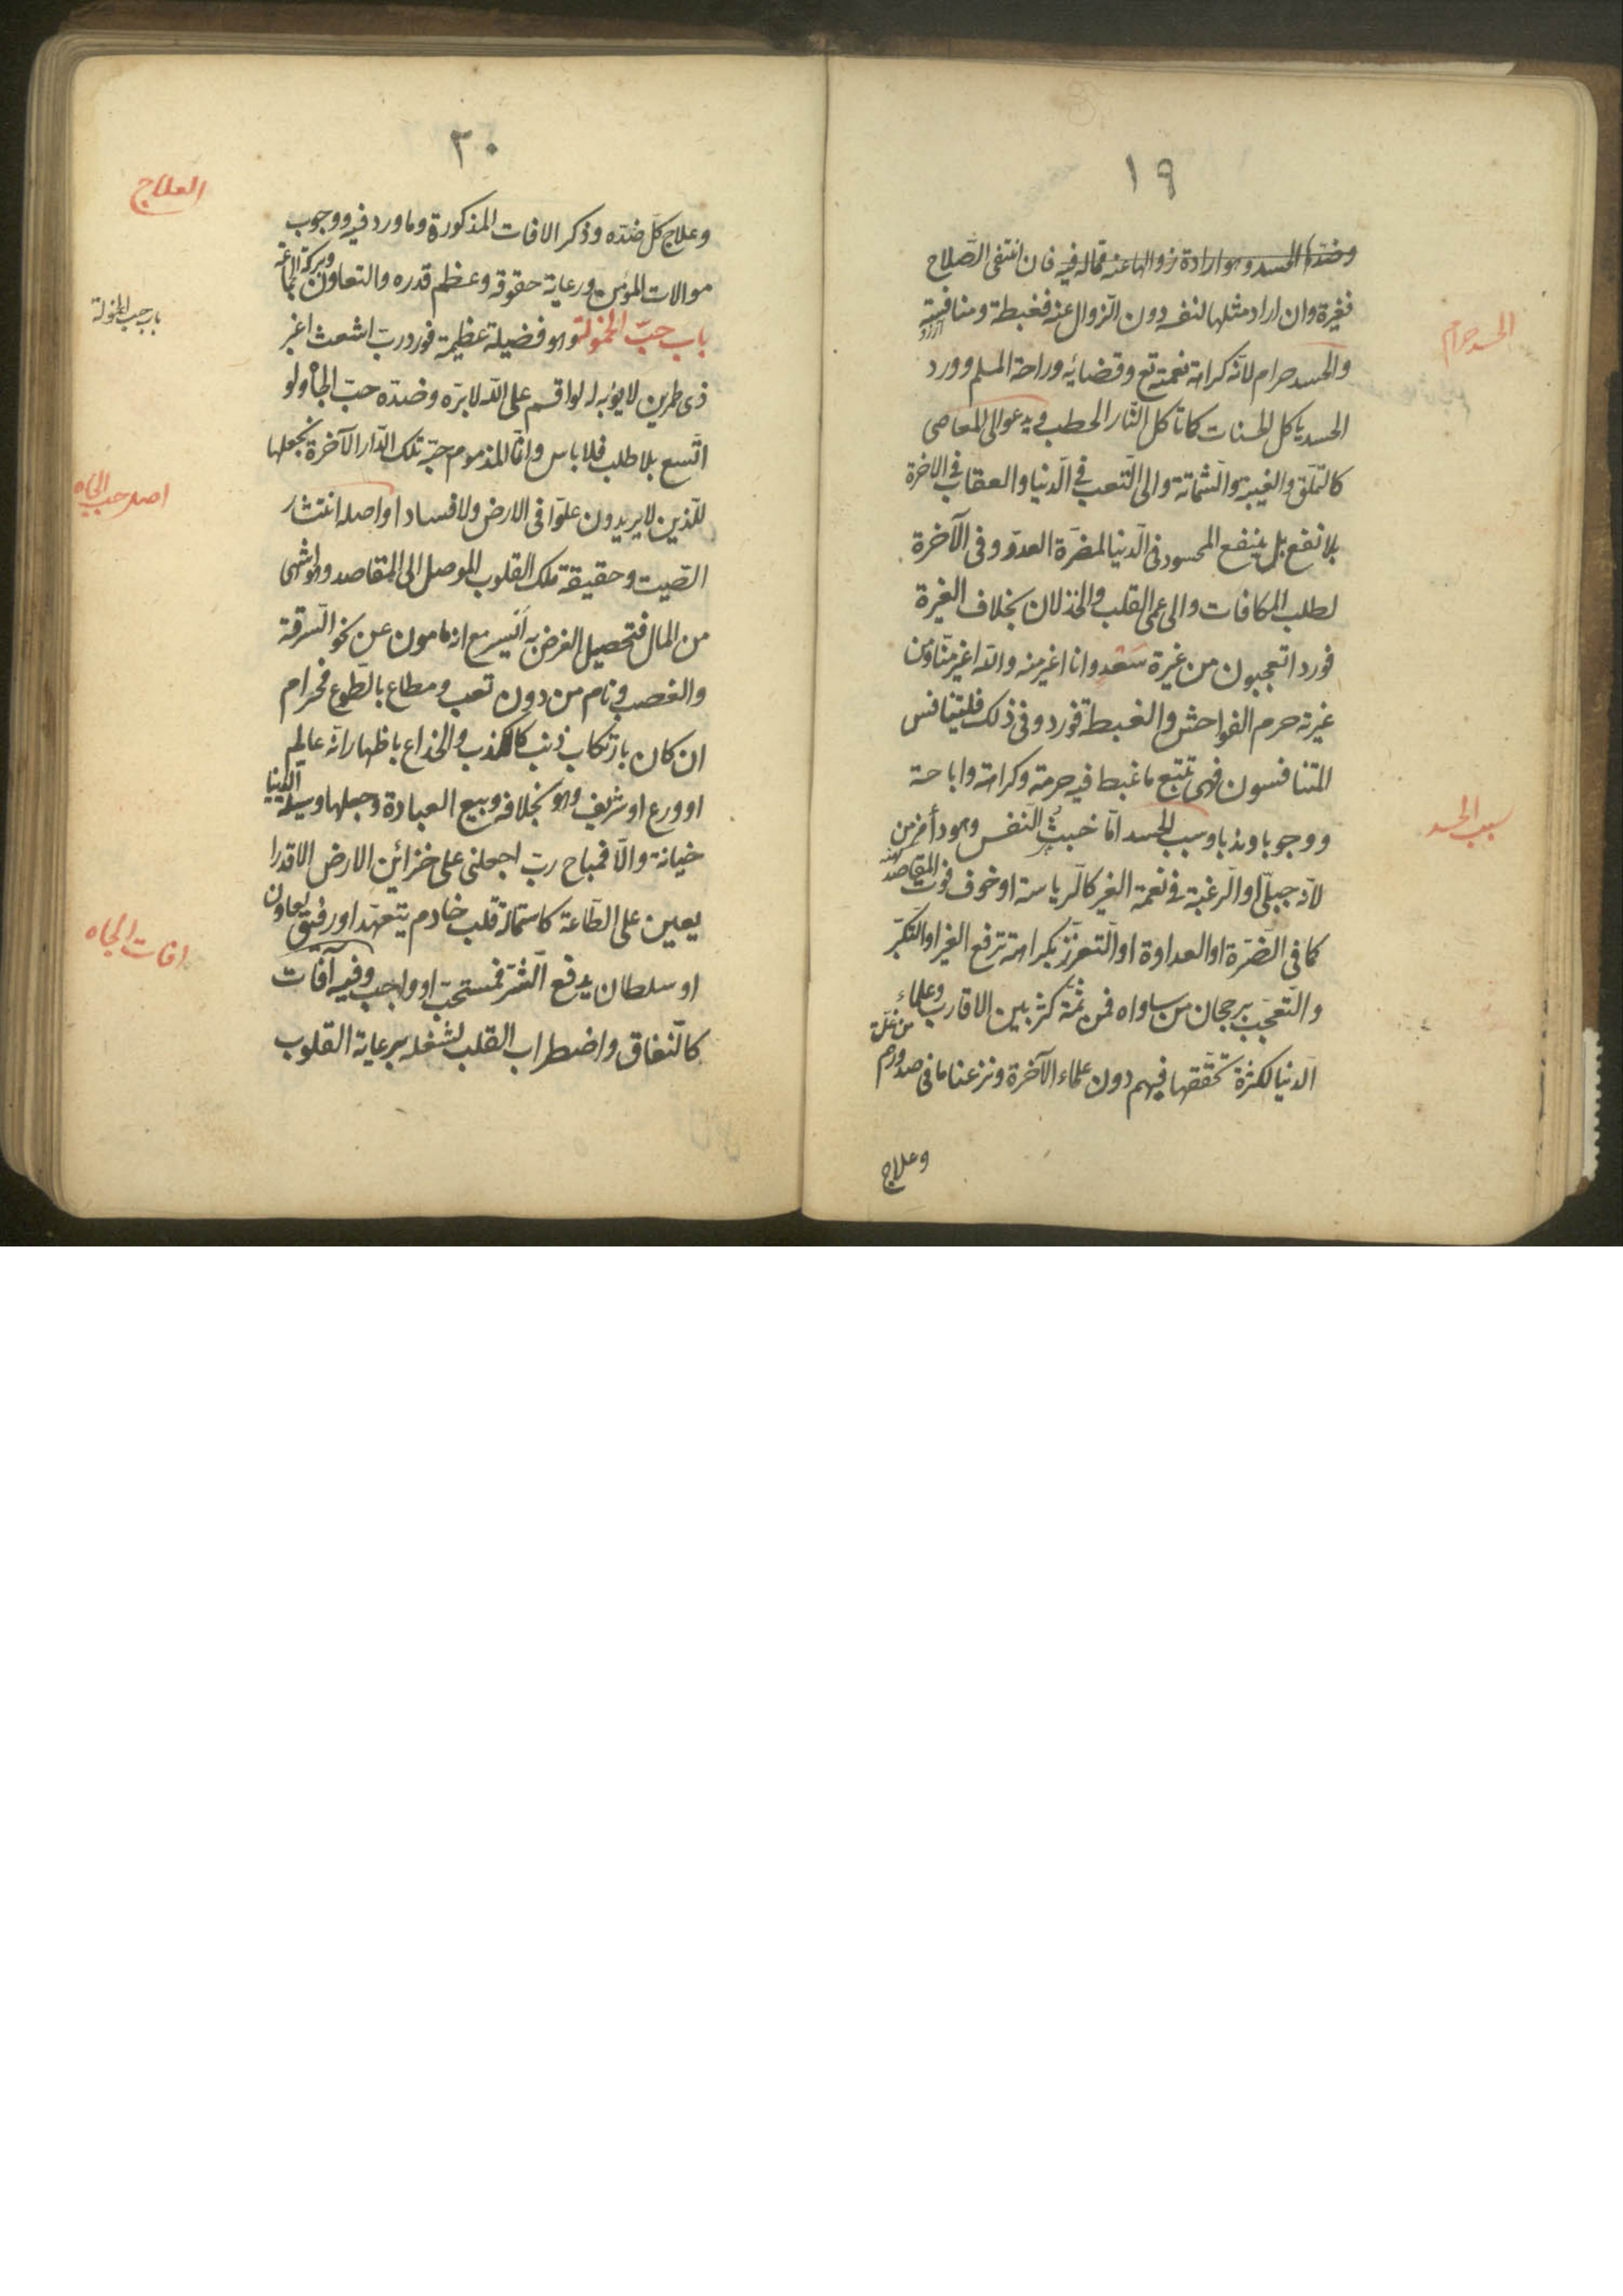 ١٩
وضدّها الحسد وهو ارادة زوالها عنه فماله فيه فان انتفى الصّلاح
فغيرة وان اراد مثلها لنفسه دون الزوال عنه فغبطة ومنافسة
الحسد حرام
والحسد حرام لانّه كراهة نعمته تع وقضائه وراحة المسلم وورد
الحسد ياكل الحسنات كما تاكل النّار الحطب ويدعو الى المعاصى
كالتملّق والغيبة والشماتة والى التّعب فى الدّنيا والعقاب فى الاخرة
بلا نفع بل ينفع المحسود فى الدّنيا لمضرّة العدوّ وفى الآخرة
لطلب المكافات والى عمى القلب والخذلان بخلاف الغيرة
فورد اتعجبون من غيرة سَعْد وانا اغير منه واللّه اغير منّا ومن
غيرته حرم الفواحش والغبطة فورد وفى ذلك فليتنافس
المتنافسون فهى تتبع ما غبط فيه حرمة وكراهة واباحة
سبب الحسد
ووجوبا وندبا وسبب الحسد امّا خبث النّفس وهو داء مزمن
لانّه جبلّى او الرّغبة فى نعمة الغير كالرّياسة او خوف فوت المقاصد
كما فى الضّرة او العداوة او التّعزّز بكراهة ترفع الغير او التكبّر
والتّعجّب برجحان من ساواه فمن ثمّة كثر بين الاقارب وعلماء
الدنيا لكثرة تحقّقها فيهم دون علماء الآخرة ونزعنا ما فى صدورهم من غلّ
وعلاج
٢٠
العلاج
وعلاج كلّ ضدّه وذكر الافات المذكورة وما ورد فيه ووجوب
موالات المؤمن ورعاية حقوقه وعظم قدره والتعاون
باب حبّ الخمولة
باب حبّ الخمولة وهو فضيلة عظيمة فورد ربّ اشعث اغبر
ذى طمرين لا يؤبه له لو اقسم على اللّه لابرّه وضدّه حبّ الجاه ولو
اتّسع بلا طلب فلا باس وانّما المذموم حبّه تلك الدّار الآخرة نجعلها
اصل حب الجاه
للّذين لا يريدون علوّا فى الارض ولا فسادا واصله انتشار
الصّيت وحقيقة ملك القلوب الموصل الى المقاصد وهو اشهى
من المال فتحصيل الغرض به اَيسر مع انه مامون عن نحو السّرقة
والغصب ونام من دون تعب ومطاع بالطّوع فحرام
ان كان بارتكاب ذنب كالكذب والخداع باظهار انّه عالم
او ورع او شريف وهو بخلافه وبيع العبادة وجعلها وسيلة الدّنيا
خيانة والّا فمباح ربّ اجعلنى على خزائن الارض الا قدرا
يعين على الطّاعة كاستمالة قلب خادم يتعهّد او رفيق يعاون
افات الجاه
او سلطان يدفع الشّر فمستحبّ او واجب وفيه آفات
كالنّفاق واضطراب القلب لشغله برعاية القلوب